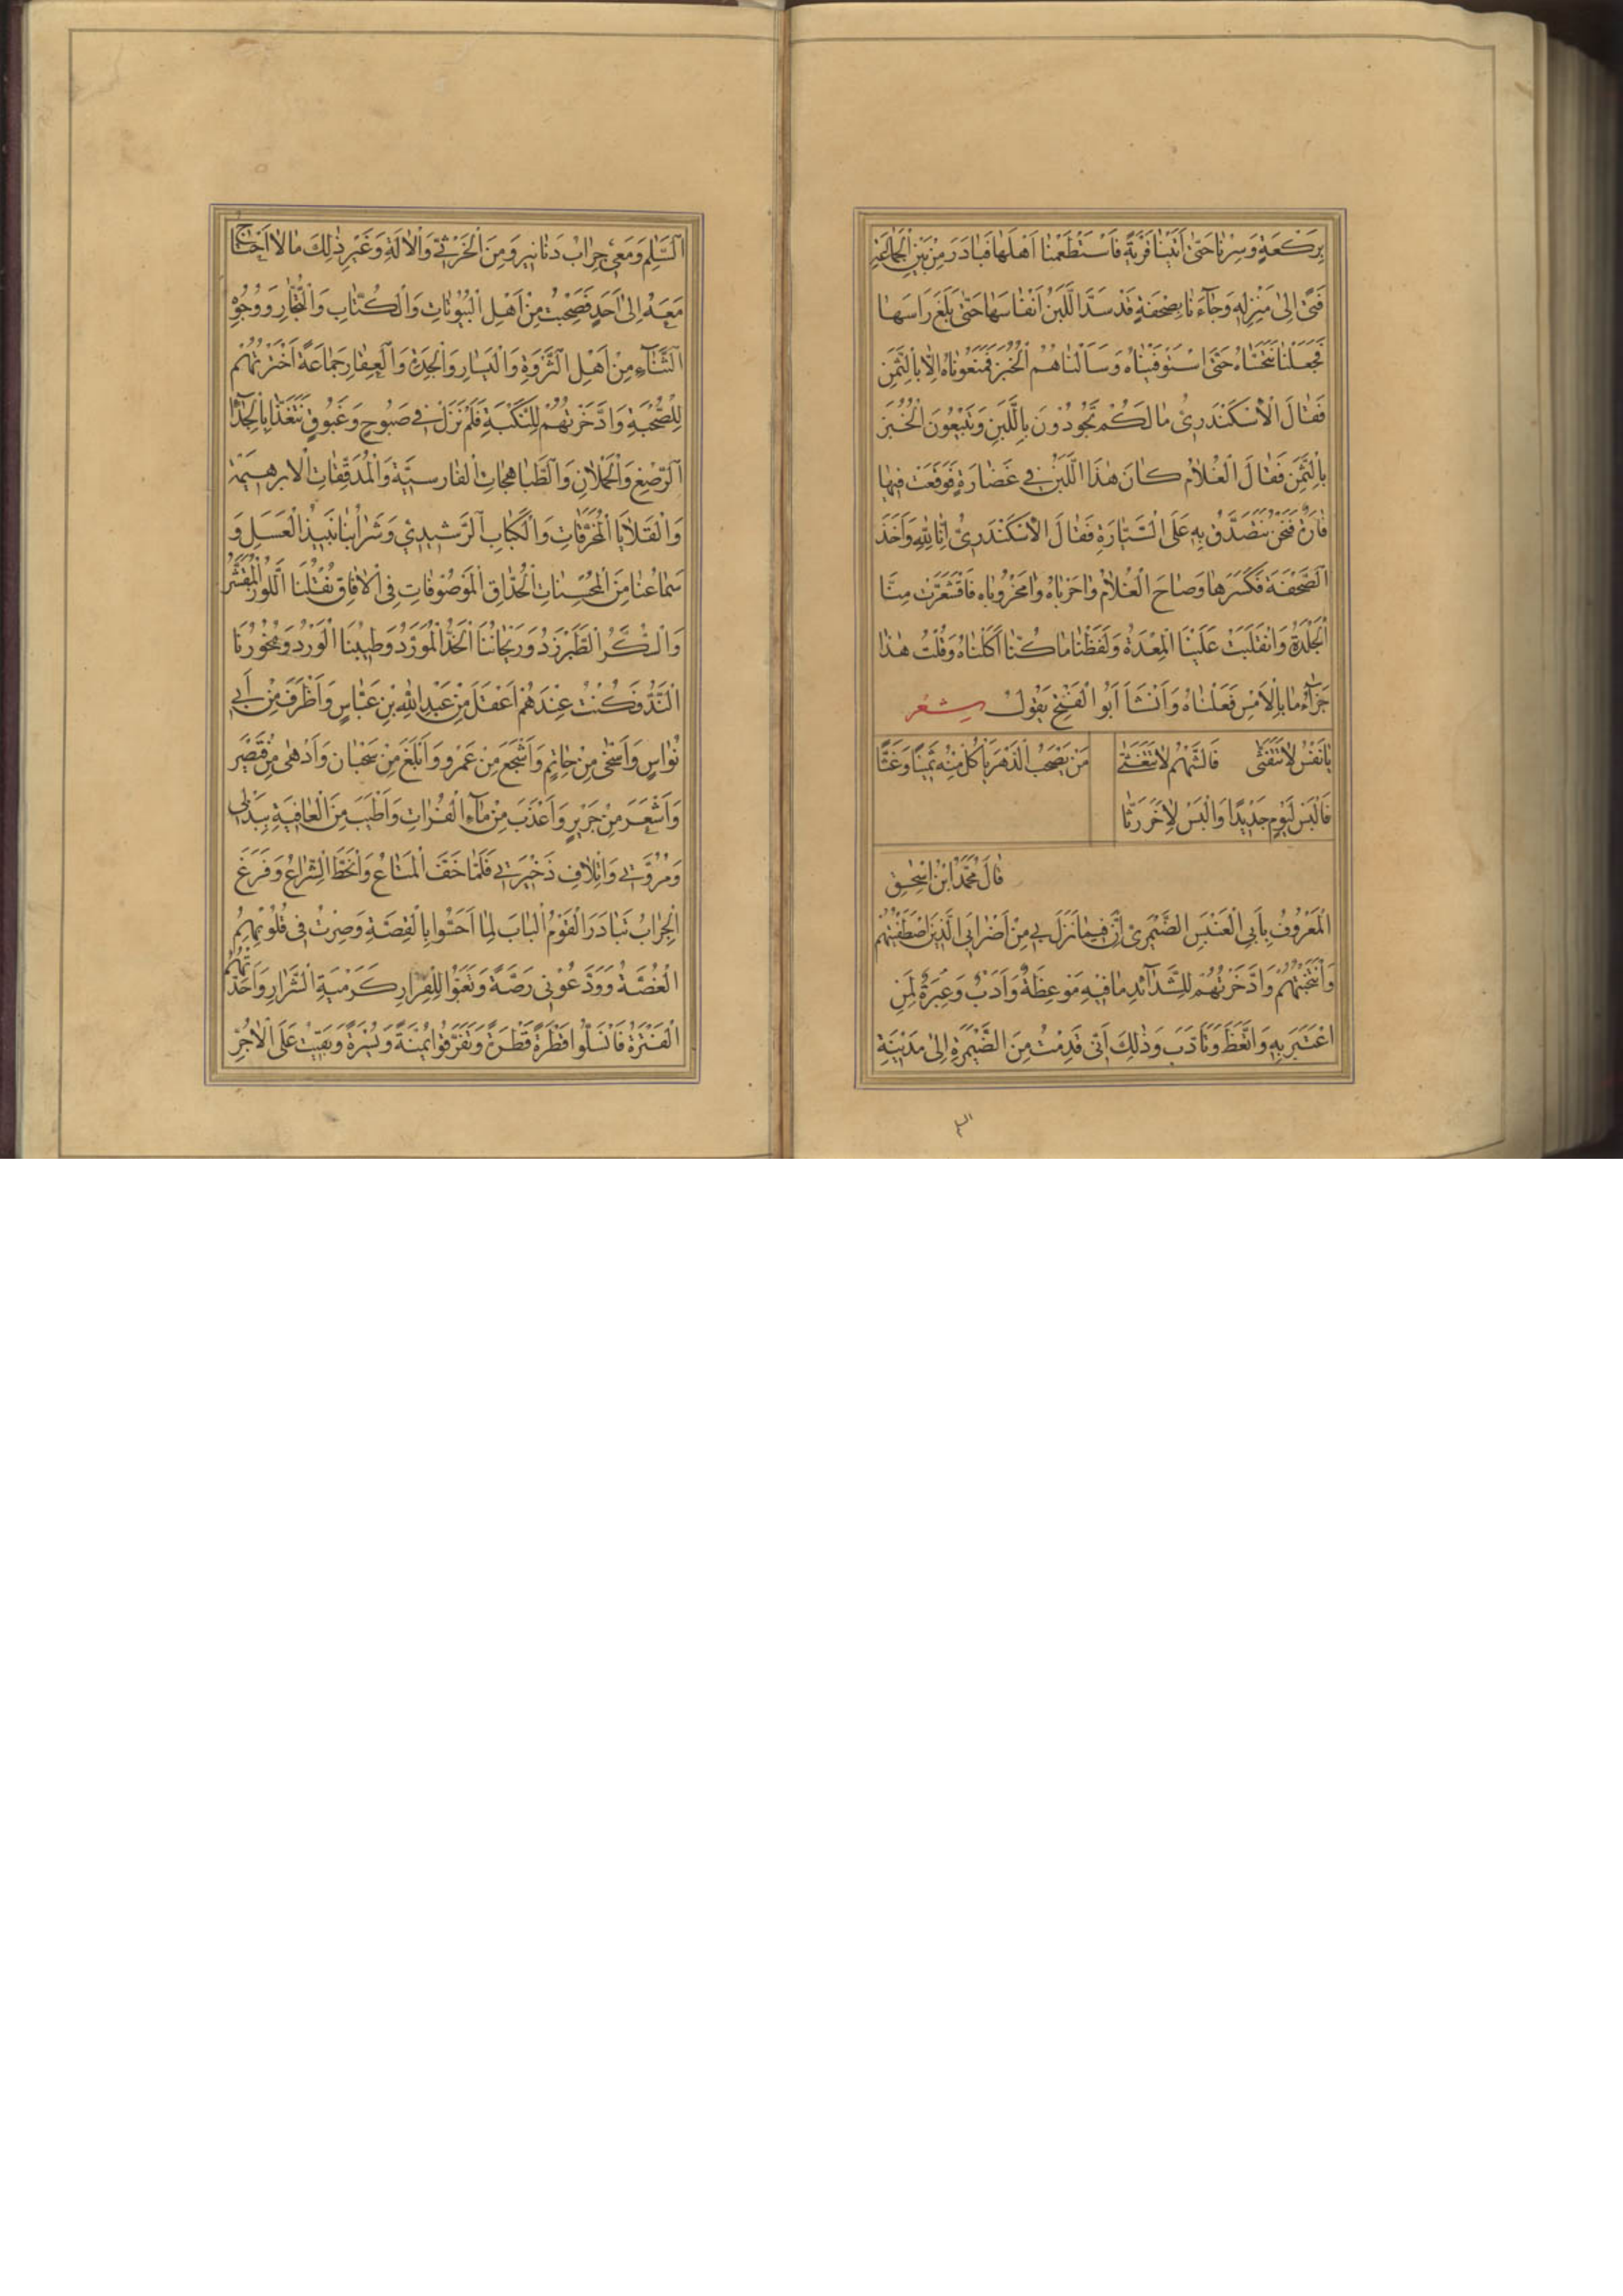 بِرَكْعَةٍ وَسِرْنَا حَتّىٰ اَتَيْنَا قَرْيَةً فَاسْتَطْعَمْنَا اَهْلَهَا فَبَادَرَ مِنْ بَيْنِ الْجَمَاعَةِ
فَتًى اِلىٰ مَنْزِلِهِ وَجَآءَنَا بِصَحْفَةٍ قَدْ سَدَّ اللَّبَنُ اَنْفَاسَهَا حَتّىٰ بَلَغَ رَاسَهَا
فَجَعَلْنَا نَتَحَسَّاهُ حَتّىٰ اسْتَوْفَيْنَاهُ وَسَاَلْنَاهُمُ الْخُبْزَ فَمَنَعُونَاهُ اِلَّا بِالثَّمَنِ
فَقَالَ الْاِسْكَنْدَرِىُّ مَا لَكُمْ تَجُودُونَ بِاللَّبَنِ وَتَبِيْعُونَ الْخُبْزَ
بِالثَّمَنِ فَقَالَ الْغُلَامُ كَانَ هٰذَا اللَّبَنُ فِي غَضَارَةٍ فَوَقَعَتْ فِيهَا
فَارَةٌ فَنَحْنُ نَتَصَدَّقُ بِهِ عَلَى السَّيَّارَةِ فَقَالَ الْاِسْكَنْدَرِىُّ اِنَّا لِلّٰهِ وَاَخَذَ
الصَّحْفَةَ فَكَسَرَهَا وَصَاحَ الْغُلَامُ وَاحَرَبَاهُ وَامَحْرُوبَاه فَاقْشَعَرَّتْ مِنَّا
الْجِلْدَةُ وَانْقَلَبَتْ عَلَيْنَا الْمِعْدَةُ وَلَفَظْنَا مَا كُنَّا اَكَلْنَاهُ وَقُلْتُ هٰذَا
جَزَآءُ مَا بِالْاَمْسِ فَعَلْنَاهُ وَاَنْشَاَ اَبُو الْفَتْحِ يَقُولُ شعر
يَا نَفْسُ لَا تَتَغَثَّى فَالشَّهْمُ لَا يَتَغَثّىٰ مَنْ يَصْحَبُ الدَّهْرَ يَاْكُلْ مِنْهُ سَمِينًا وَغَثًّا
فَالْبَسْ لِيَوْمٍ جَدِيْدًا وَالْبَسْ لِاٰخَرَ رَثًّا
قَالَ مُحَمَّدُ ابْنُ اِسْحٰقَ
الْمَعْرُوفُ بِاَبِي الْعَنْبَسِ الصَّيْمَرِىّ اِنَّ فِيمَا نَزَلَ بِي مِنْ اَصْحَابِيَ الَّذِينَ اصْطَفَيْتُهُمْ
وَانْتَخَبْتُهُمْ وَادَّخَرْتُهُمْ لِلشَّدَآئِدِ مَا فِيْهِ مَوْعِظَةٌ وَاَدَبٌ وَعِبْرَةٌ لِمَنِ
اعْتَبَرَ بِهِ وَاتَّعَظَ وَتَاَدَّبَ وَذٰلِكَ اَنّى قَدِمْتُ مِنَ الصَّيْمَرَةِ اِلىٰ مَدِيْنَةِ
السَّلٰمِ وَمَعِي جِرَابُ دَنَانِيرَ وَمِنَ الْخُرْثِيّ وَالْاٰلَةِ وَغَيْرِ ذٰلِكَ مَا لَا اَحْتَاجُ
مَعَهُ اِلىٰ اَحَدٍ فَصَحِبْتُ مِنْ اَهْلِ الْبُيُوتَاتِ وَالْكُتَّابِ وَالتُّجَّارِ وَوُجُوْهِ
الثُّنَآءِ مِنْ اَهْلِ الثَّرْوَةِ وَالْيَسَارِ وَالْجِدَةِ وَالْعِقَارِ جَمَاعَةً اخْتَرْتُهُمْ
لِلصُّحْبَةِ وَادَّخَرْتُهُمْ لِلنَّكْبَةِ فَلَمْ نَزَلْ فِي صَبُوحٍ وَغَبُوقٍ نَتَغَذَّا بِالْجِدَاءِ
الرُّضَّعِ وَالْحُمْلَانِ وَالطَّبَاهِجَاتِ الْفَارِسِيَّةِ وَالْمُدَقَّقَاتِ الْابْرهِيْمِيَّة
وَالْقَلَايَا الْمُحْرَقَاتِ وَالْكَبَابِ الرَّشِيدِيّ وَشَرَابُنَا نَبِيْذُ الْعَسَلِ وَ
سَمَاعُنَا مِنَ الْمُحْسِنَاتِ الْحُذَّاقِ الْمَوْصُوْفَاتِ فِي الْاٰفَاقِ نُقْلُنَا اللَّوْزُ الْمُقَشَّرُ
وَالسُّكَّرُ الطَّبَرْزَدُ وَرَيْحَانُنَا الْخَدُّ الْمُوَرَّدُ وَطِيْبُنَا الْوَرْدُ وَبَخُوْرُنَا
النَّدُّ فَكُنْتُ عِنْدَهُمْ اَعْقَلَ مِنْ عَبْدِ اللّٰهِ بْنِ عَبَّاسٍ وَاَظْرَفَ مِنْ اَبِي
نُوَاسٍ وَاَسْخٰى مِنْ حَاتِمٍ وَاَشْجَعَ مِنْ عَمْرٍو وَاَبْلَغَ مِنْ سَحْبَانَ وَاَدْهٰى مِنْ قَصِيْرٍ
وَاَشْعَرَ مِنْ جَرِيْرٍ وَاَعْذَبَ مِنْ مَآءِ الْفُرَاتِ وَاَطْيَبَ مِنَ الْعَافِيَةِ بِبَذْلِي
وَمُرُوَّتِي وَاِتْلَافِ ذَخِيْرَتِي فَلَمَّا خَفَّ الْمَتَاعُ وَانْحَطَّ الشِّرَاعُ وَفَرَغَ
الْجِرَابُ تَبَادَرَ الْقَوْمُ الْبَابَ لَمَّا اَحَسُّوا بِالْقِصَّةِ وَصِرْتُ فِي قُلُوبِهِمْ
الْغُصَّةُ وَوَدَّعُوْنِي رَصَّةً وَتَعَبَّوْا لِلْفِرَارِ كَرَمْيَةِ الشَّرَارِ وَاَخَذَتْهُمْ
الْفَتْرَةُ فَانْسَلُّوا قَطْرَةً قَطْرَةً وَتَفَرَّقُوا يُمْنَةً وَيُسْرَةً وَبَقِيْتُ عَلَى الْاٰجُرّ